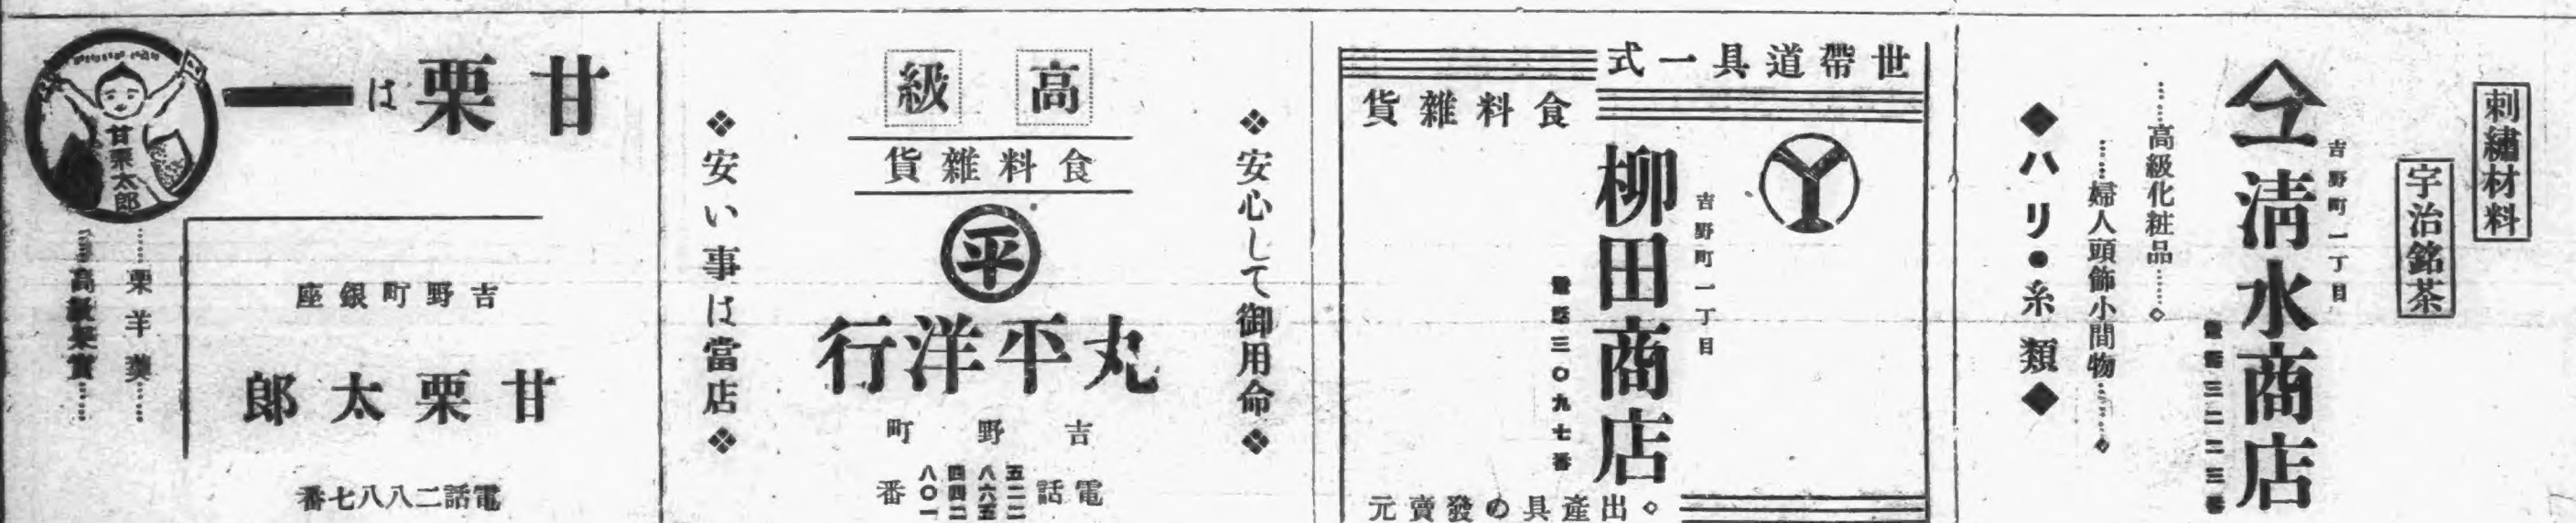 刺繡材料
宇治銘茶
吉野町一丁目
清水商店
電話三二二三番
……高級化粧品……◇
……婦人頭飾小間物……◇
◆ハリ●糸類◆
世帶道具一式
食料雜貨
吉野町一丁目
柳田商店
電話三〇九七番
◇出產具の發賣元
❖安心して御用命❖
高級
食料雜貨
平
丸平洋行
吉野町
電話
五二二二
八六五
四四二
八〇一
番
❖安い事は當店❖
甘栗は一
甘栗太郎
吉野町銀座
甘栗太郎
電話二八八七番
……栗羊羹……
……高級菓實……